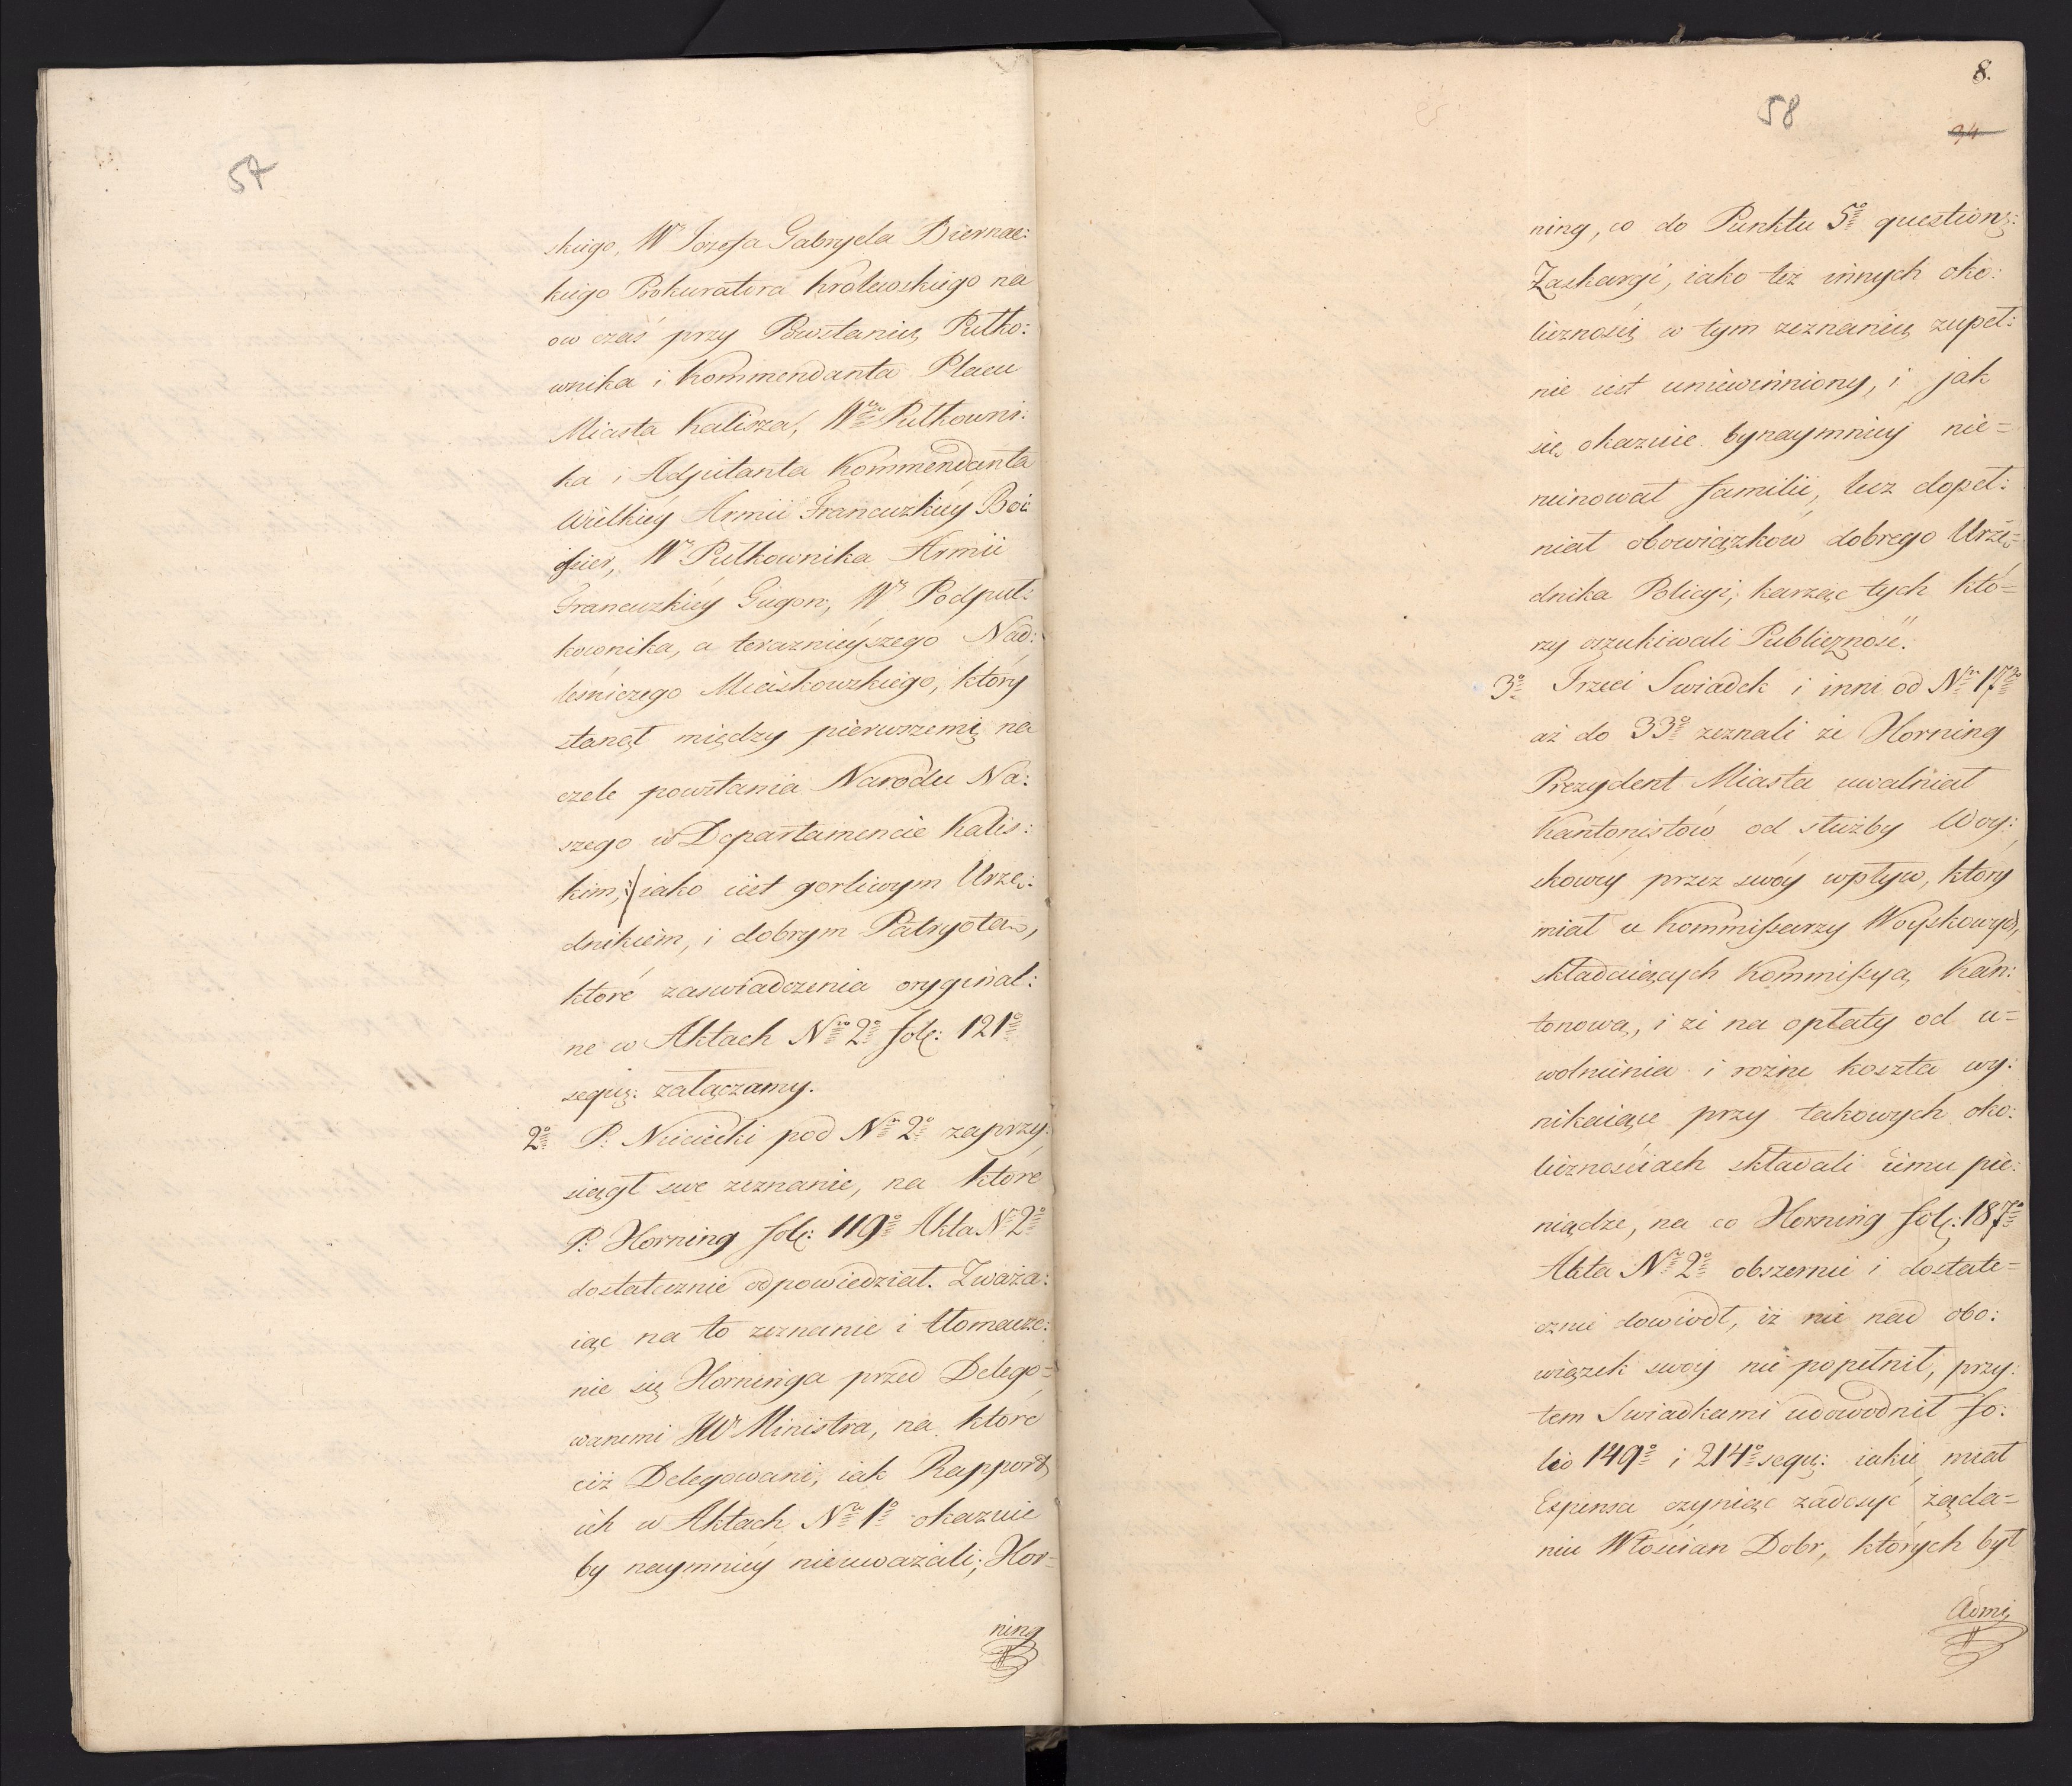 57
skiego, W. Jozefa Gabryela Biernac:
kiego Prokuratora Krolewskiego na
ow czas przy Powstaniu, Pułko:
wnika i Kommendanta Placu
Miasta Kalisza, Wgo Pułkowni:
ka i Adjutanta Kommendanta
Wielkiey Armii Francuzkiey
W. Pułkownika Armii
Francuzkiey Gugon, W. Podpuł:
kownika, a teraznieyszego Nad:
leśniczego Mieiskowzkiego, który
stanął między pierwszemi na
czele powstania Narodu Na:
szego w Departamencie Kalis:
kim, iako iest gorliwym Urzę:
dnikiem, i dobrym Patryotą,
które zaswiadczenia oryginal:
ne w Aktach Nro 2o fol: 121o
sequ: załączamy.
2o P. Nieciecki pod Nr 2o zaprzy:
siągł swe zeznanie, na które
P. Horning fol: 119o Akta Nr 2o
dostatecznie odpowiedział. Zważa:
iąc na to zeznanie i tłomacze:
nie się Horninga przed Delego=
wanemi JW Ministra, na które
ciż Delegowani, iak Rapport
ich w Aktach Nro 1o okazuie
by naymniey nieuważali; Hor=
ning
8.
58
24
ning, co do Punktu 5o question:
Zaskargi, iako też innych oko:
liczności w tym zeznaniu zupeł:
nie iest uniewinniony, i jak
się okazuie bynaymniey nie=
ruinował familii, lecz dopeł:
niał obowiązków dobrego Urzę=
dnika Policyi, karząc tych któ=
rzy oszukiwali Publiczność.
3o Trzeci Swiadek i inni od Nro 17go
aż do 33o zeznali że Horning
Prezydent Miasta uwalniał
Kantonistów od służby Woy:
skowey przez swóy wpływ, który
miał u Kommissarzy Woyskowych,
składaiących Kommissyą Kan:
tonową, i że na opłaty od u=
wolnienia i rożne koszta wy:
nikaiące przy takowych oko:
licznościach składali iemu pie:
niądze, na co Horning fol: 187o
Akta Nr 2o obszernie i dostate=
cznie dowiodł, iż nic nad obo:
wiązek swoy nie popełnił, przy:
tem Swiadkami udowodnił fo:
lio 149o i 214o sequ: iakie miał
Expensa czyniąc zadosyć żąda=
niu Włościan Dobr, których był
Admi